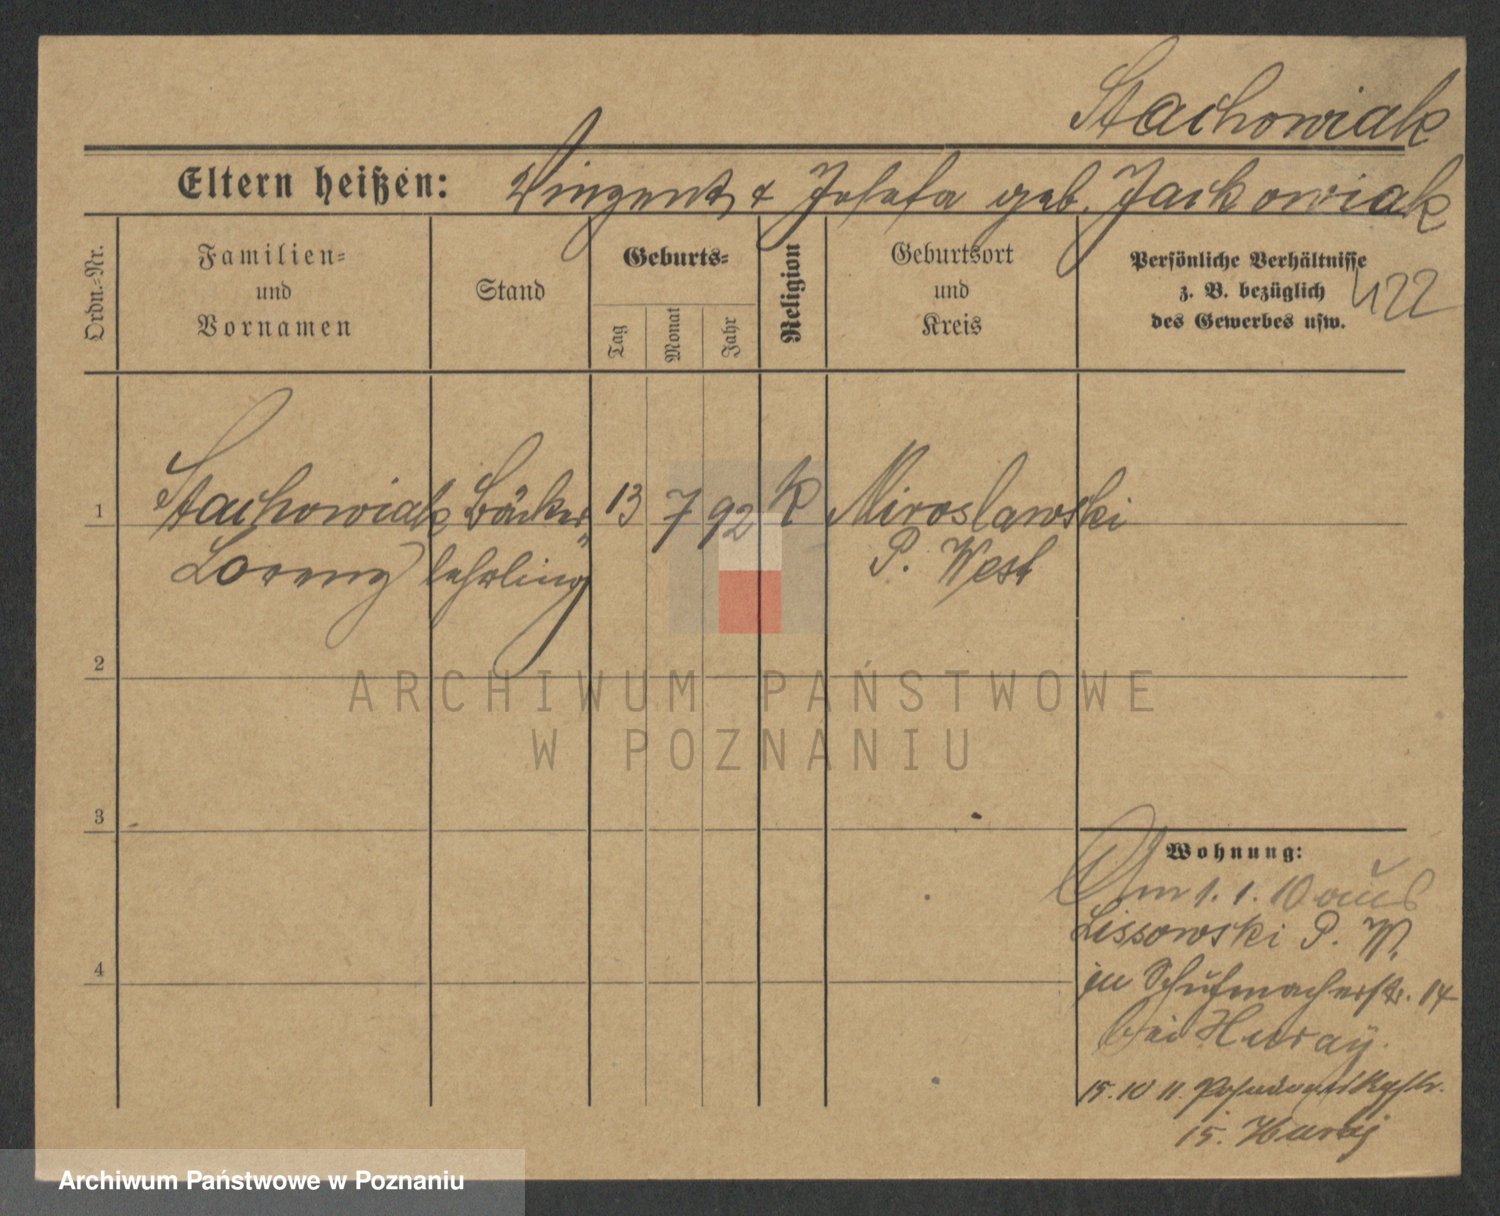 Stachowiak
Eltern heißen: Vinzent & Josefa geb. Jackowiak
Ordn.-Nr.
Familien=
und
Vornamen
Stand
Geburts=
Tag
Monat
Jahr
Religion
Geburtsort
und
Kreis
Persönliche Verhältnisse
z. B. bezüglich
des Gewerbes usw.
422
1 Stachowiak Bäcker 13 7 92 K Miroslawski
Lorenz lehrling P. West
2
ARCHIWUM PAŃSTWOWE
W POZNANIU
3
Wohnung:
Am 1. 1. 10 aus
Lissowski P. W.
in Schuhmacherstr. 14
bei Huray.
4
15. 10 11.
15. Huraj
Archiwum Państwowe w Poznaniu